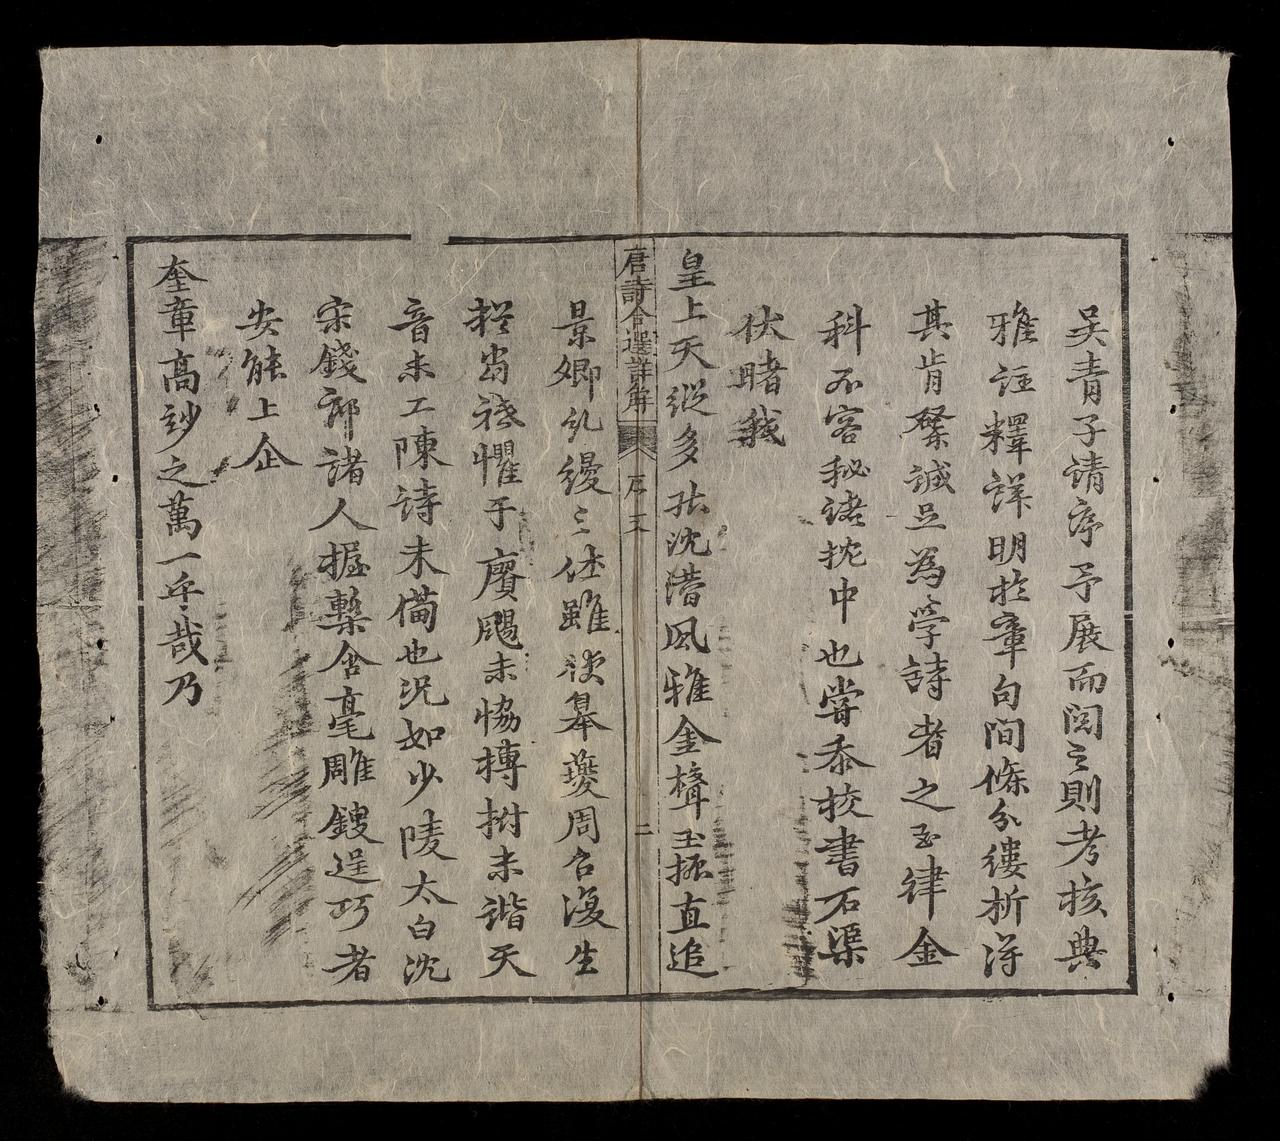 吴青子請序予展而閱之則考核典
雅註釋詳明於章句間條分縷析得
其肯綮誠足為學詩者之玉律金
科不容秘諸枕中也嘗忝校書石渠
伏睹我
皇上天縱多才沈潛風雅金聲玉振直追
唐詩合選詳解
序文
二
景卿糺縵三体雖使皋夔周召復生
猶當祗懼于賡颺未恊摶拊未諧天
音未工陳詩未備也況如少陵太白沈
宋錢郎諸人握槧含毫雕鎪逞巧者
安能上企
奎章高妙之萬一乎哉乃